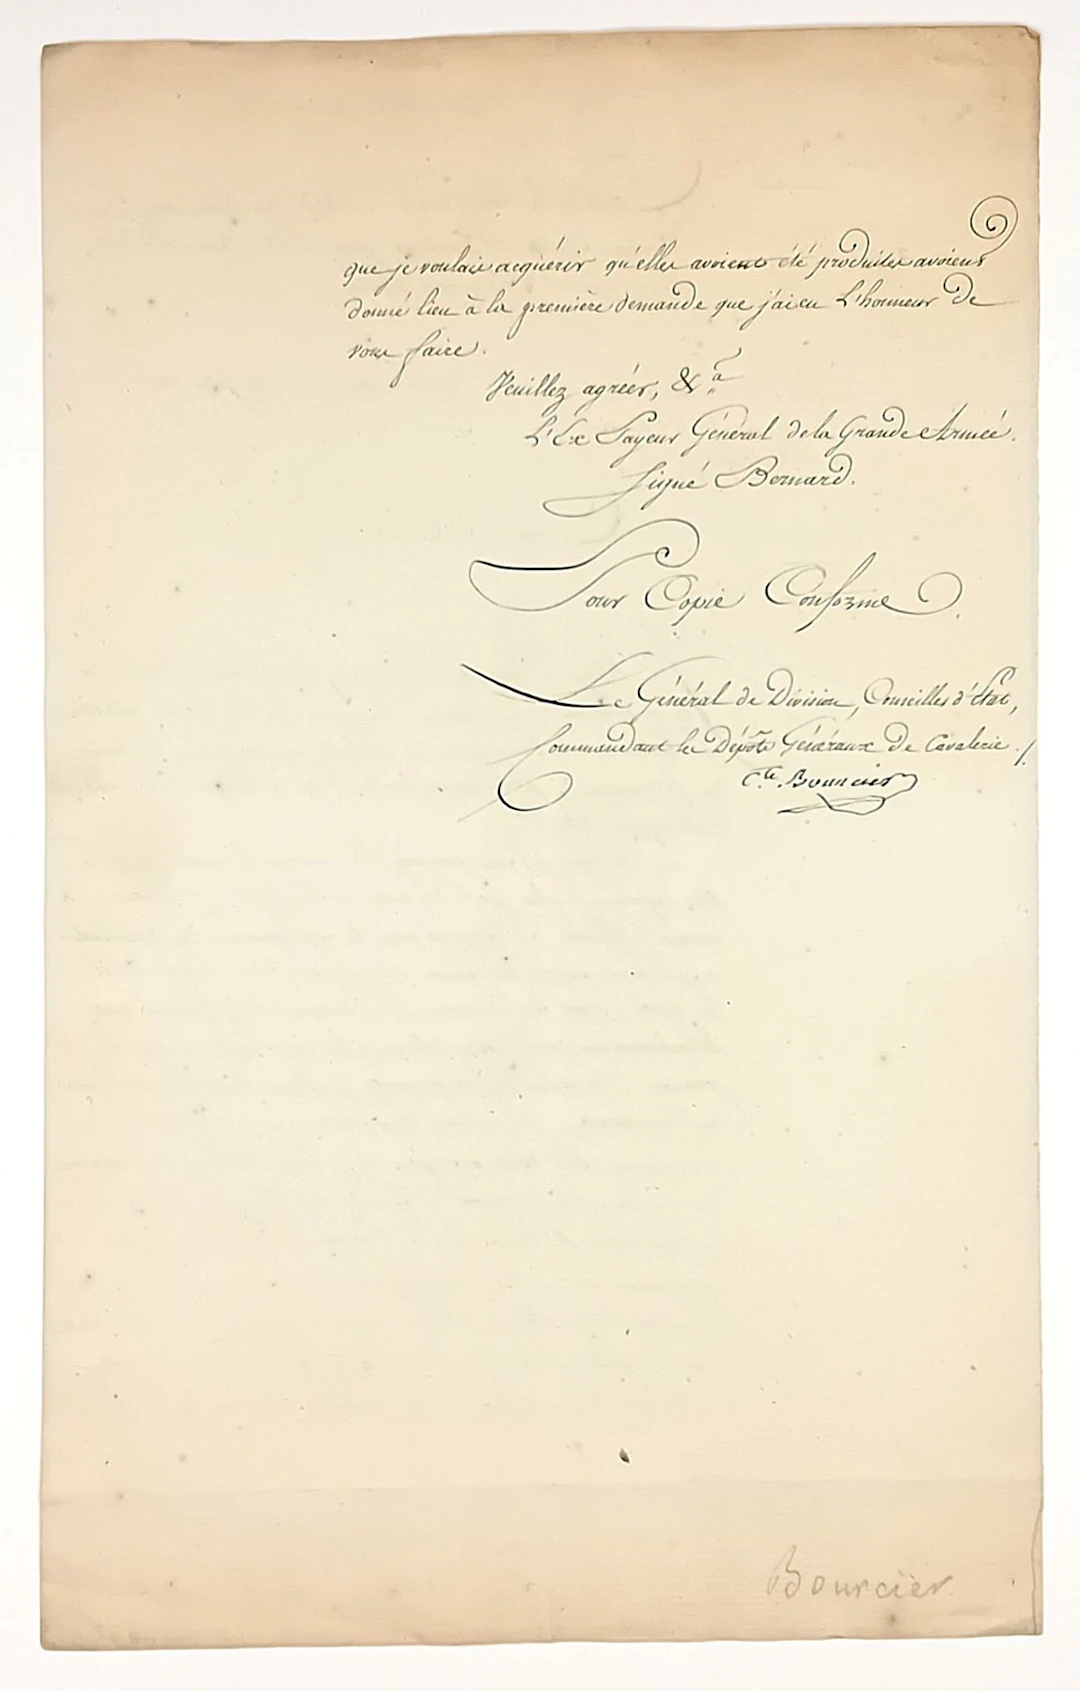 que je voulais acquérir qu'elles avoient été produites avoient
donné lieu à la première demande que j'ai eu l'honneur de
vous faire.
Veuillez agréer, &a
L'Ex Payeur Général de la Grande Armée.
Signé Bernard.
Pour Copie Conforme.
Le Général de Division, Conseiller d'Etat,
Commandant les Dépôts Généraux de Cavalerie ./.
Cte. Bourcier
Bourcier